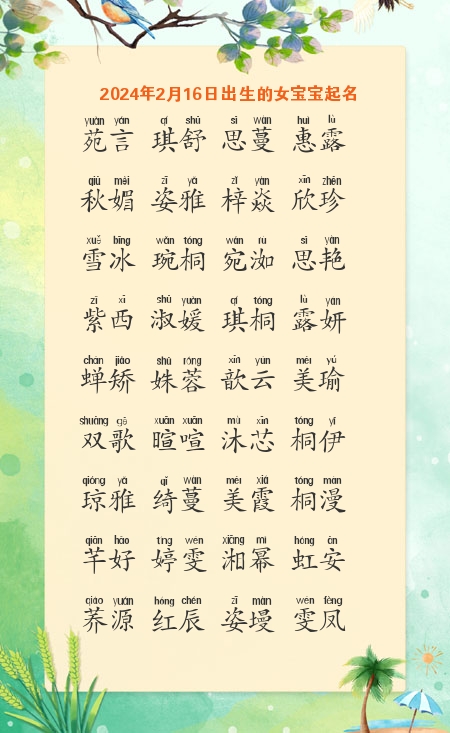 2024年2月16日出生的女宝宝起名
yuàn yán qí shū sī wàn huì lù
苑言 琪舒 思蔓 惠露
qiū mèi zī yǎ zǐ yàn xīn zhēn
秋媚 姿雅 梓焱 欣珍
xuě bīng wǎn tóng wǎn rù sī yàn
雪冰 琬桐 宛洳 思艳
zǐ xī shū yuàn qí tóng lù yán
紫西 淑媛 琪桐 露妍
chán jiāo shū róng xīn yún měi yú
蝉矫 姝蓉 歆云 美瑜
shuāng gē xuān xuān mù xīn tóng yī
双歌 暄喧 沐芯 桐伊
qióng yǎ qǐ wàn měi xiá tóng màn
琼雅 绮蔓 美霞 桐漫
qiān hǎo tíng wén xiāng mì hóng ān
芊好 婷雯 湘幂 虹安
qiáo yuán hóng chén zī màn wén fèng
荞源 红辰 姿墁 雯凤